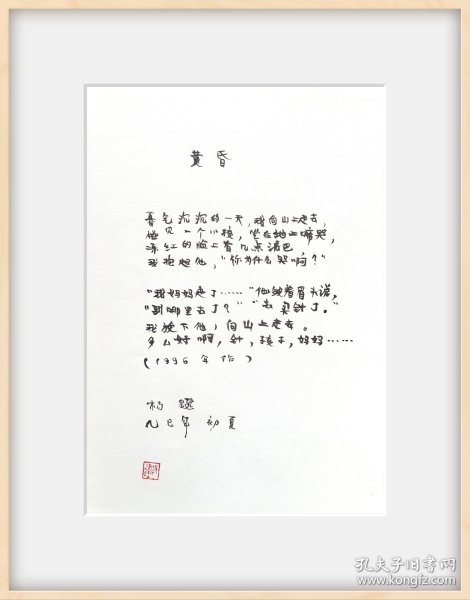 黄昏
暮气沉沉的一天,我向山上走去,
碰见一个小孩,坐在地上啼哭,
冻红的脸上有几点泥巴,
我抱起他,“你为什么哭啊?”
“我妈妈走了……”他皱着眉头说,
“到哪里去了?”“去买针了。”
我放下他,向山上走去。
多么好啊,针,孩子,妈妈……
(1996年作)
杨键
巳年 初夏
孔夫子旧书网
www.kongfz.com